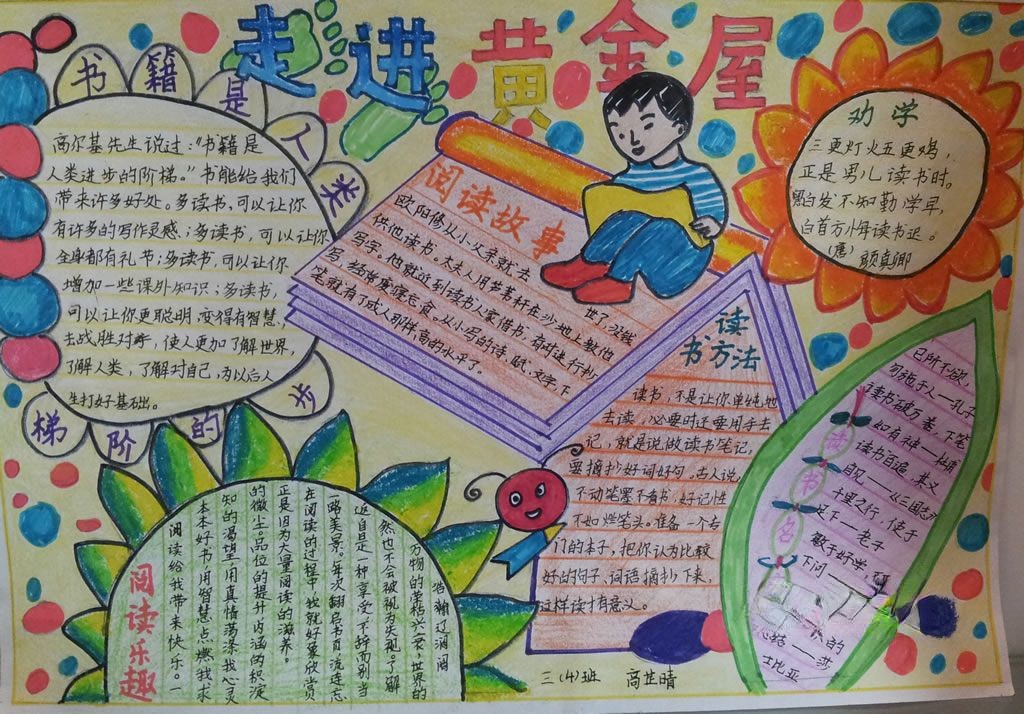 走进黄金屋
书籍是人类
进步的阶梯
高尔基先生说过:“书籍是
人类进步的阶梯。”书能给我们
带来许多好处。多读书,可以让你
有许多的写作灵感;多读书,可以让你
全身都有礼节;多读书,可以让你
增加一些课外知识;多读书,
可以让你更聪明,变得有智慧,
去战胜对手,使人更加了解世界,
了解人类,了解对自己,为以后人
生打好基础。
阅读故事
欧阳修从小父亲就去
世了,没钱
供他读书。太夫人用芦苇秆在沙地上教他
写字。他就近到读书人家借书,有时进行抄
写,
废寝忘食。从小写的诗、赋、文字,下
笔就有了成人那样高的水平了。
劝学
三更灯火五更鸡,
正是男儿读书时。
黑发不知勤学早,
白首方悔读书迟。
(唐)颜真卿
读
书方法
读书,不是让你单纯地
去读,必要时还要用手去
记,就是说做读书笔记,
要摘抄好词好句。古人说,
不动笔墨不看书,好记性
不如烂笔头。准备一个专
门的本子,把你认为比较
好的句子、词语摘抄下来,
这样读才有意义。
读书名
己所不欲,
勿施于人—孔子
读书破万卷,下笔
如有神—杜甫
读书百遍,其义
自见—《三国志》
千里之行,始于
足下—老子
敏于好学,
下问——
的
——莎
士比亚
阅读乐趣
阅读给我带来快乐。一
本本好书用智慧点燃我求
知的渴望,用真情荡涤我心灵
的微尘。品位的提升,内涵的积淀
正是因为大量阅读的滋养。
在阅读的过程中,我就好像欣赏
一路美景。每次翻启书页,流连忘
返自是一种享受,不辞而别当
然也不会被视为失礼。了解
万物的荣枯兴衰、世界的
浩瀚辽阔
三(4)班 高芷晴